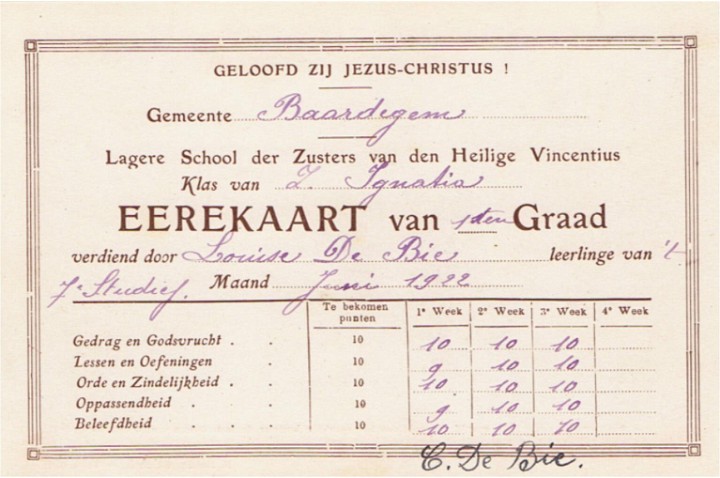 GELOOFD ZIJ JEZUS-CHRISTUS !
Gemeente Baardegem
Lagere School der Zusters van den Heilige Vincentius
Klas van Z. Ignatia
EEREKAART van 1sten Graad
verdiend door Louise De Bie leerlinge van 't
7e Studiej. Maand Juni 1922
Te bekomen punten 1e Week 2e Week 3e Week 4e Week
Gedrag en Godsvrucht . . 10 10 10 10
Lessen en Oefeningen . 10 9 10 10
Orde en Zindelijkheid . . 10 10 10 10
Oppassendheid . . 10 9 10 10
Beleefdheid . . 10 10 10 10
C. De Bie.